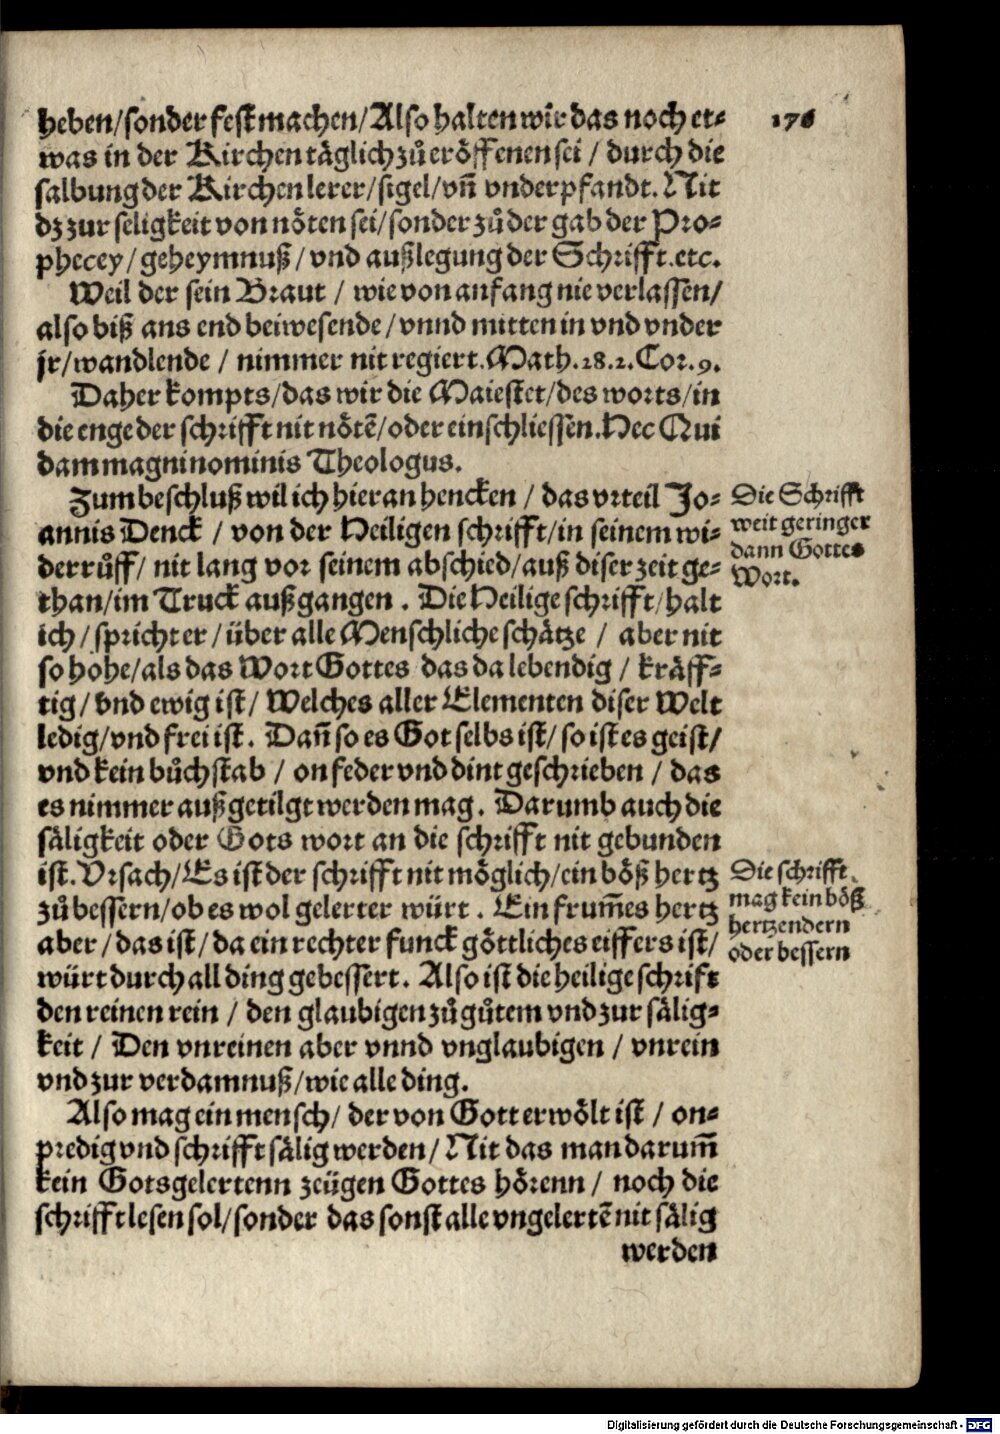 176
heben/sonder fest machen/Also halten wir das noch et⸗
was in der Kirchen täglich zů eröffenen sei / durch die
salbung der Kirchen lerer/sigel/vñ vnderpfandt. Nit
dz zur seligkeit von nöten sei/sonder zů der gab der Pro⸗
phecey/geheymnuß/vnd außlegung der Schrifft.etc.
Weil der sein Braut / wie von anfang nie verlassen/
also biß ans end beiwesende/vnnd mitten in vnd vnder
jr/wandlende / nimmer nit regiert.Math.28.1.Cor.9.
Daher kompts/das wir die Maiestet/des worts/in
die enge der schrifft nit nötẽ/oder einschliessen.Hec Qui
dam magni nominis Theologus.
Zum beschluß wil ich hieran hencken / das vrteil Jo⸗
annis Denck / von der Heiligen schrifft/in seinem wi⸗
derrůff/ nit lang vor seinem abschied/auß diser zeit ge⸗
than/im Truck außgangen . Die Heilige schrifft/halt
ich/spricht er/über alle Menschliche schätze / aber nit
so hohe/als das Wort Gottes das da lebendig / kräff⸗
tig/vnd ewig ist/ Welches aller Elementen diser Welt
ledig/vnd frei ist. Dañ so es Got selbs ist/so ist es geist/
vnd kein bůchstab / on feder vnd dint geschrieben / das
es nimmer außgetilgt werden mag. Darumb auch die
säligkeit oder Gots wort an die schrifft nit gebunden
ist.Vrsach/Es ist der schrifft nit möglich/ein böß hertz
zů bessern/ob es wol gelerter würt . Ein frum̃es hertz
aber/das ist/da ein rechter funck göttliches eiffers ist/
würt durch all ding gebessert. Also ist die heilige schrift
den reinen rein / den glaubigen zů gůtem vnd zur sälig⸗
keit / Den vnreinen aber vnnd vnglaubigen / vnrein
vnd zur verdamnuß/wie alle ding.
Also mag ein mensch/ der von Gott erwölt ist / on⸗
predig vnd schrifft sälig werden/ Nit das man darum̃
kein Gotsgelertenn zeügen Gottes hörenn / noch die
schrifft lesen sol/sonder das sonst alle vngelertẽ nit sälig
werden
Die Schrifft
weit geringer
dann Gottes
Wort.
Die schrifft
mag kein böß
hertz endern
oder bessern
Digitalisierung gefördert durch die Deutsche Forschungsgemeinschaft - DFG